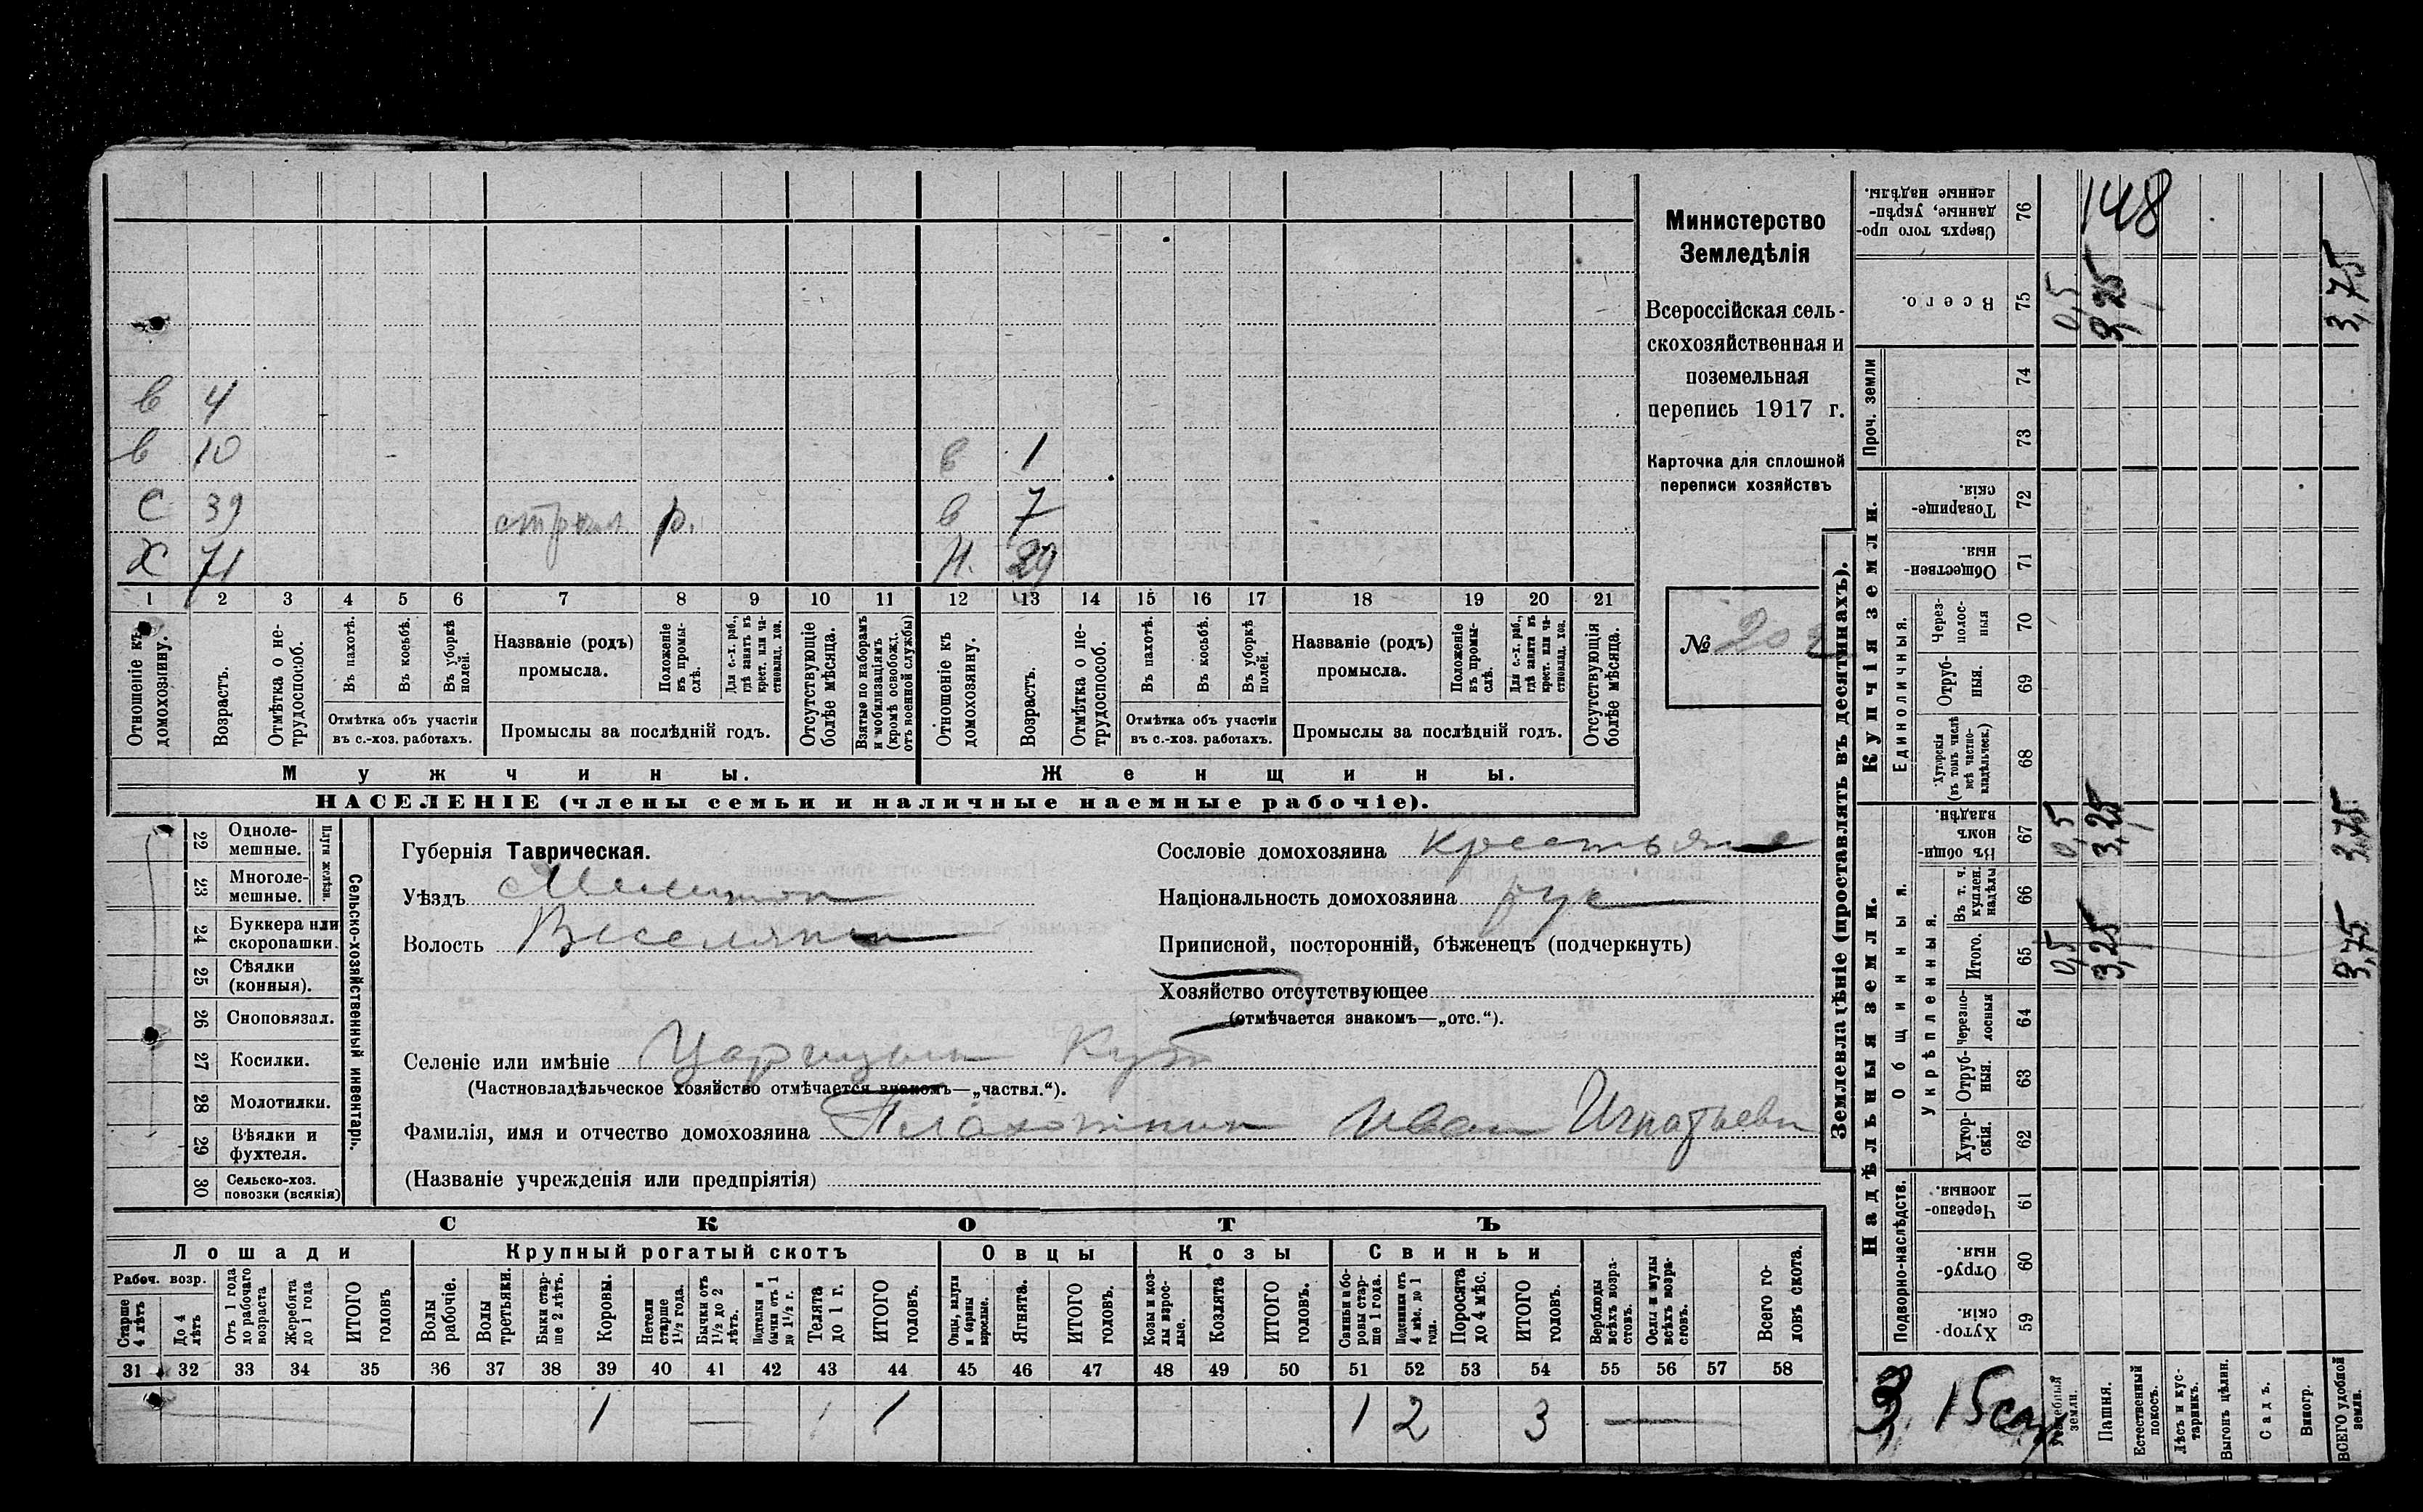 Министерство
Земледѣлія
Всероссійская сель-
скохозяйственная и
поземельная
перепись 1917 г.
Карточка для сплошной
переписи хозяйствъ
№ 202
в 4
в 10 в 1
С 39 р. в 7
Х 71 Н. 29
1 2 3 4 5 6 7 8 9 10 11 12 13 14 15 16 17 18 19 20 21
Отношеніе къ домохозяину.
Возрастъ.
Отмѣтка о не-трудоспособ.
Въ пахотѣ.
Въ косьбѣ.
Въ уборкѣ полей.
Отмѣтка объ участіи
въ с.-хоз. работахъ.
Названіе (родъ)
промысла.
Положеніе въ промы-слѣ.
Для с.-х. раб., гдѣ занятъ въ крест. или ча-стновлад. хоз.
Промыслы за послѣдній годъ.
Отсутствующіе болѣе мѣсяца.
Взятые по наборамъ и мобилизаціямъ (кромѣ освобожд. отъ военной службы)
Отношеніе къ домохозяину.
Возрастъ.
Отмѣтка о не-трудоспособ.
Въ пахотѣ.
Въ косьбѣ.
Въ уборкѣ полей.
Отмѣтка объ участіи
въ с.-хоз. работахъ.
Названіе (родъ)
промысла.
Положеніе въ промы-слѣ.
Для с.-х. раб., гдѣ занята въ крест. или ча-стновлад. хоз.
Промыслы за послѣдній годъ.
Отсутствующія болѣе мѣсяца.
Мужчины. Женщины.
НАСЕЛЕНІЕ (члены семьи и наличные наемные рабочіе).
Сельско-хозяйственный инвентарь.
Плуги желѣзн.
22 Одноле-
мешные.
23 Многоле-
мешные.
24 Буккера или
скоропашки.
25 Сѣялки
(конныя).
26 Сноповязал.
27 Косилки.
28 Молотилки.
29 Вѣялки и
фухтеля.
30 Сельско-хоз.
повозки (всякія)
Губернія Таврическая.
Уѣздъ Мелитоп
Волость Веселянск
Сословіе домохозяина крестьяне
Національность домохозяина рус
Приписной, посторонній, бѣженецъ (подчеркнуть)
Хозяйство отсутствующее
(отмѣчается знакомъ—„отс.“).
Селеніе или имѣніе Царицын Кут
(Частновладѣльческое хозяйство отмѣчается знакомъ—„частвл.“).
Фамилія, имя и отчество домохозяина Плахотник Иван Игнатьевич
(Названіе учрежденія или предпріятія)
СКОТЪ
Лошади Крупный рогатый скотъ Овцы Козы Свиньи
Рабоч. возр.
Старше 4 лѣтъ
До 4 лѣтъ
Отъ 1 года до рабочаго возраста
Жеребята до 1 года
ИТОГО головъ
Волы рабочіе.
Волы третьяки.
Быки стар-ше 2 лѣтъ.
Коровы.
Нетели старше 1½ года.
Бычки отъ 1½ до 2 лѣтъ.
Подтелки и бычки отъ 1 до 1½ г.
Телята до 1 г.
ИТОГО головъ.
Овцы, валухи и бараны взрослые.
Ягнята.
ИТОГО головъ.
Козы и коз-лы взрос-лые.
Козлята
ИТОГО головъ.
Свиньи и бо-ровы стар-ше 1 года.
Подсвинки отъ 4 мѣс. до 1 года.
Поросята до 4 мѣс.
ИТОГО головъ.
Верблюды всѣхъ возра-стовъ.
Ослы и мулы всѣхъ возра-стовъ.
Всего го-ловъ скота.
31 32 33 34 35 36 37 38 39 40 41 42 43 44 45 46 47 48 49 50 51 52 53 54 55 56 57 58
1 — 1 1 1 2 3 —
Землевладѣніе (проставлять въ десятинахъ).
Надѣльныя земли. Купчія земли.
Подворно-наслѣдств.
Общинныя.
Укрѣпленныя.
Единоличныя.
Проч. земли
Хутор-скія. 59
Отруб-ныя. 60
Черезпо-лосныя. 61
Хутор-скія. 62
Отруб-ныя. 63
Черезпо-лосныя 64
Итого. 65
Въ т. ч. куплен. надѣлы 66
Въ общи-номъ владѣн. 67
Хуторскія (въ томъ числѣ всѣ частно-владѣльческ.) 68
Отруб-ныя. 69
Через-полос-ныя 70
Обществен-ныя 71
Товарище-скія. 72
73
74
Всего. 75
Сверхъ того про-данные, укрѣп-ленные надѣлы. 76
Усадебный земли. 0,5 0,5 0,5
Пашня. 3,25 3,25 3,25 148
Естественный покосъ.
Лѣсъ и кус-тарникъ.
Выгонъ цѣлин.
Садъ.
Виногр.
ВСЕГО удобной земли. 3,75 3,75 3,75